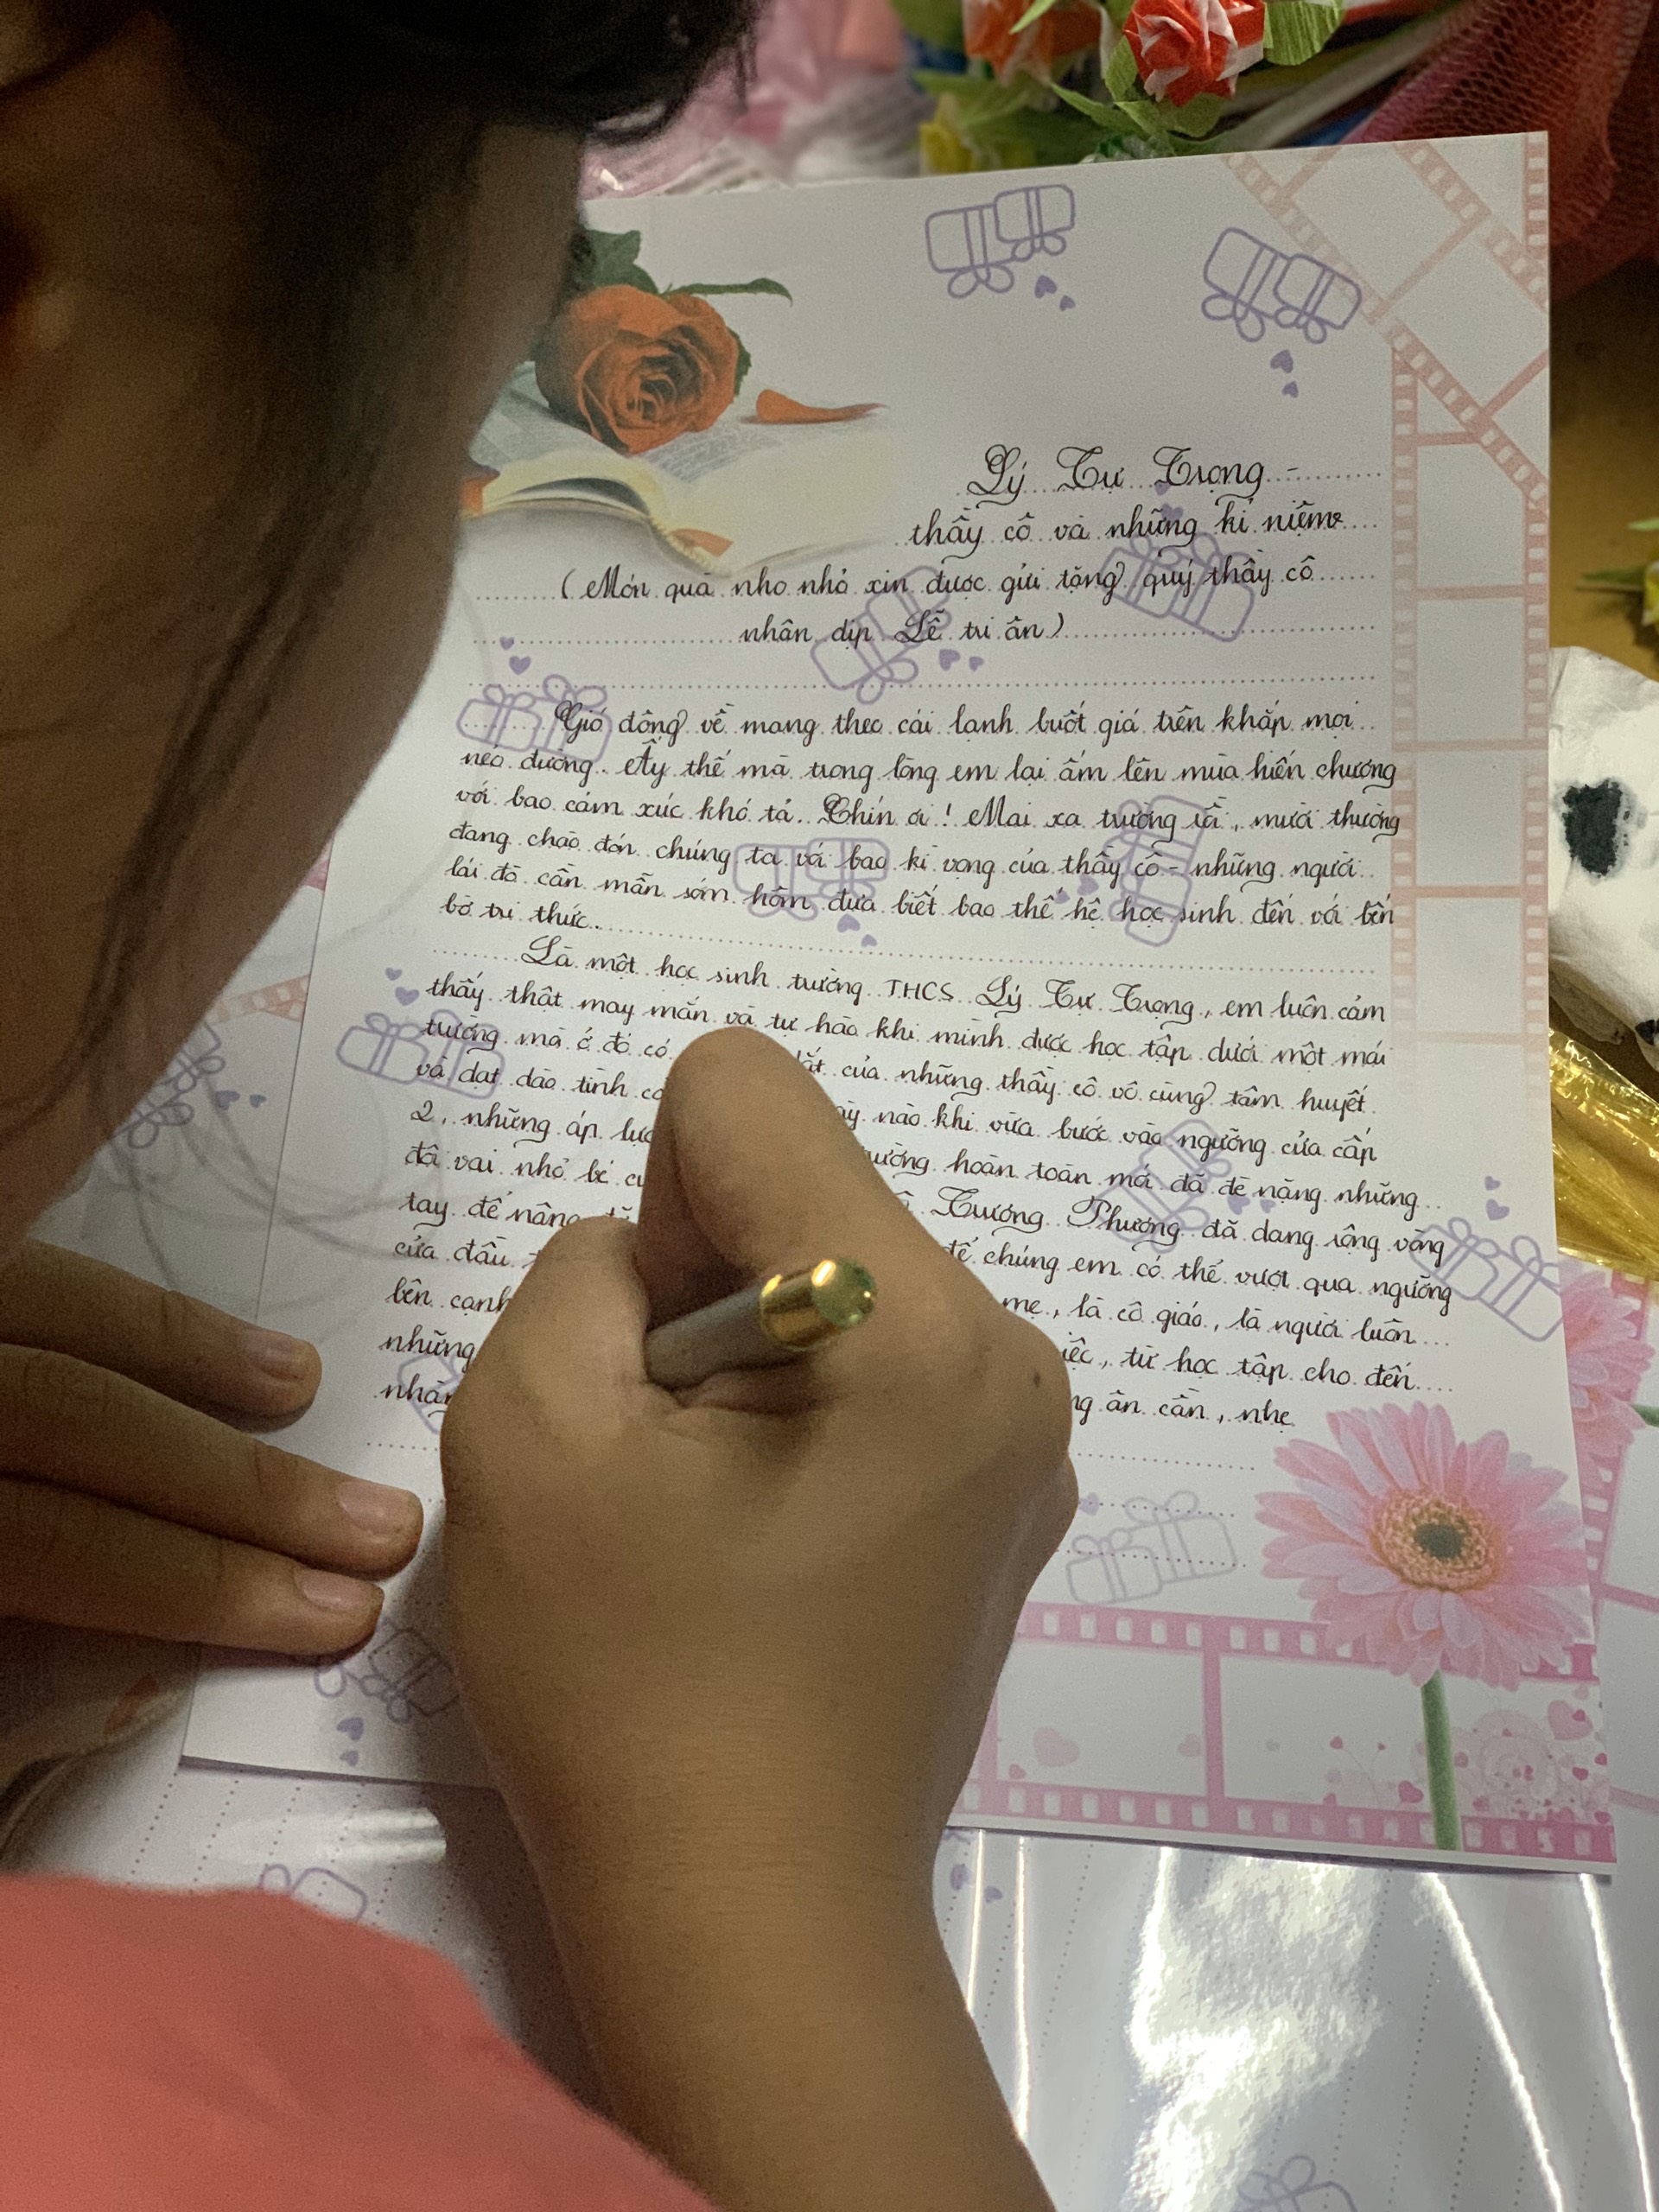 Lý Tự Trọng -
thầy cô và những kỉ niệm
( Món quà nho nhỏ xin được gửi tặng quý thầy cô
nhân dịp Lễ tri ân )
Gió đông về mang theo cái lạnh buốt giá trên khắp mọi
nẻo đường. Ấy thế mà trong lòng em lại ấm lên mùa hiến chương
với bao cảm xúc khó tả. Chín ơi ! Mai xa trường rồi, mười thương
đang chào đón chúng ta với bao kì vọng của thầy cô - những người
lái đò cần mẫn sớm hôm đưa biết bao thế hệ học sinh đến với bến
bờ tri thức.
Là một học sinh trường T.H.C.S Lý Tự Trọng, em luôn cảm
thấy thật may mắn và tự hào khi mình được học tập dưới một mái
trường mà ở đó có dắt của những thầy cô vô cùng tâm huyết
và dạt dào tình nào khi vừa bước vào ngưỡng cửa cấp
2, những áp lực trường hoàn toàn mới đã đè nặng những
đôi vai nhỏ bé Trương Phương đã dang rộng vòng
tay để nâng để chúng em có thể vượt qua ngưỡng
cửa đầu mẹ, là cô giáo, là người luôn
bên cạnh việc, từ học tập cho đến
những ân cần, nhẹ